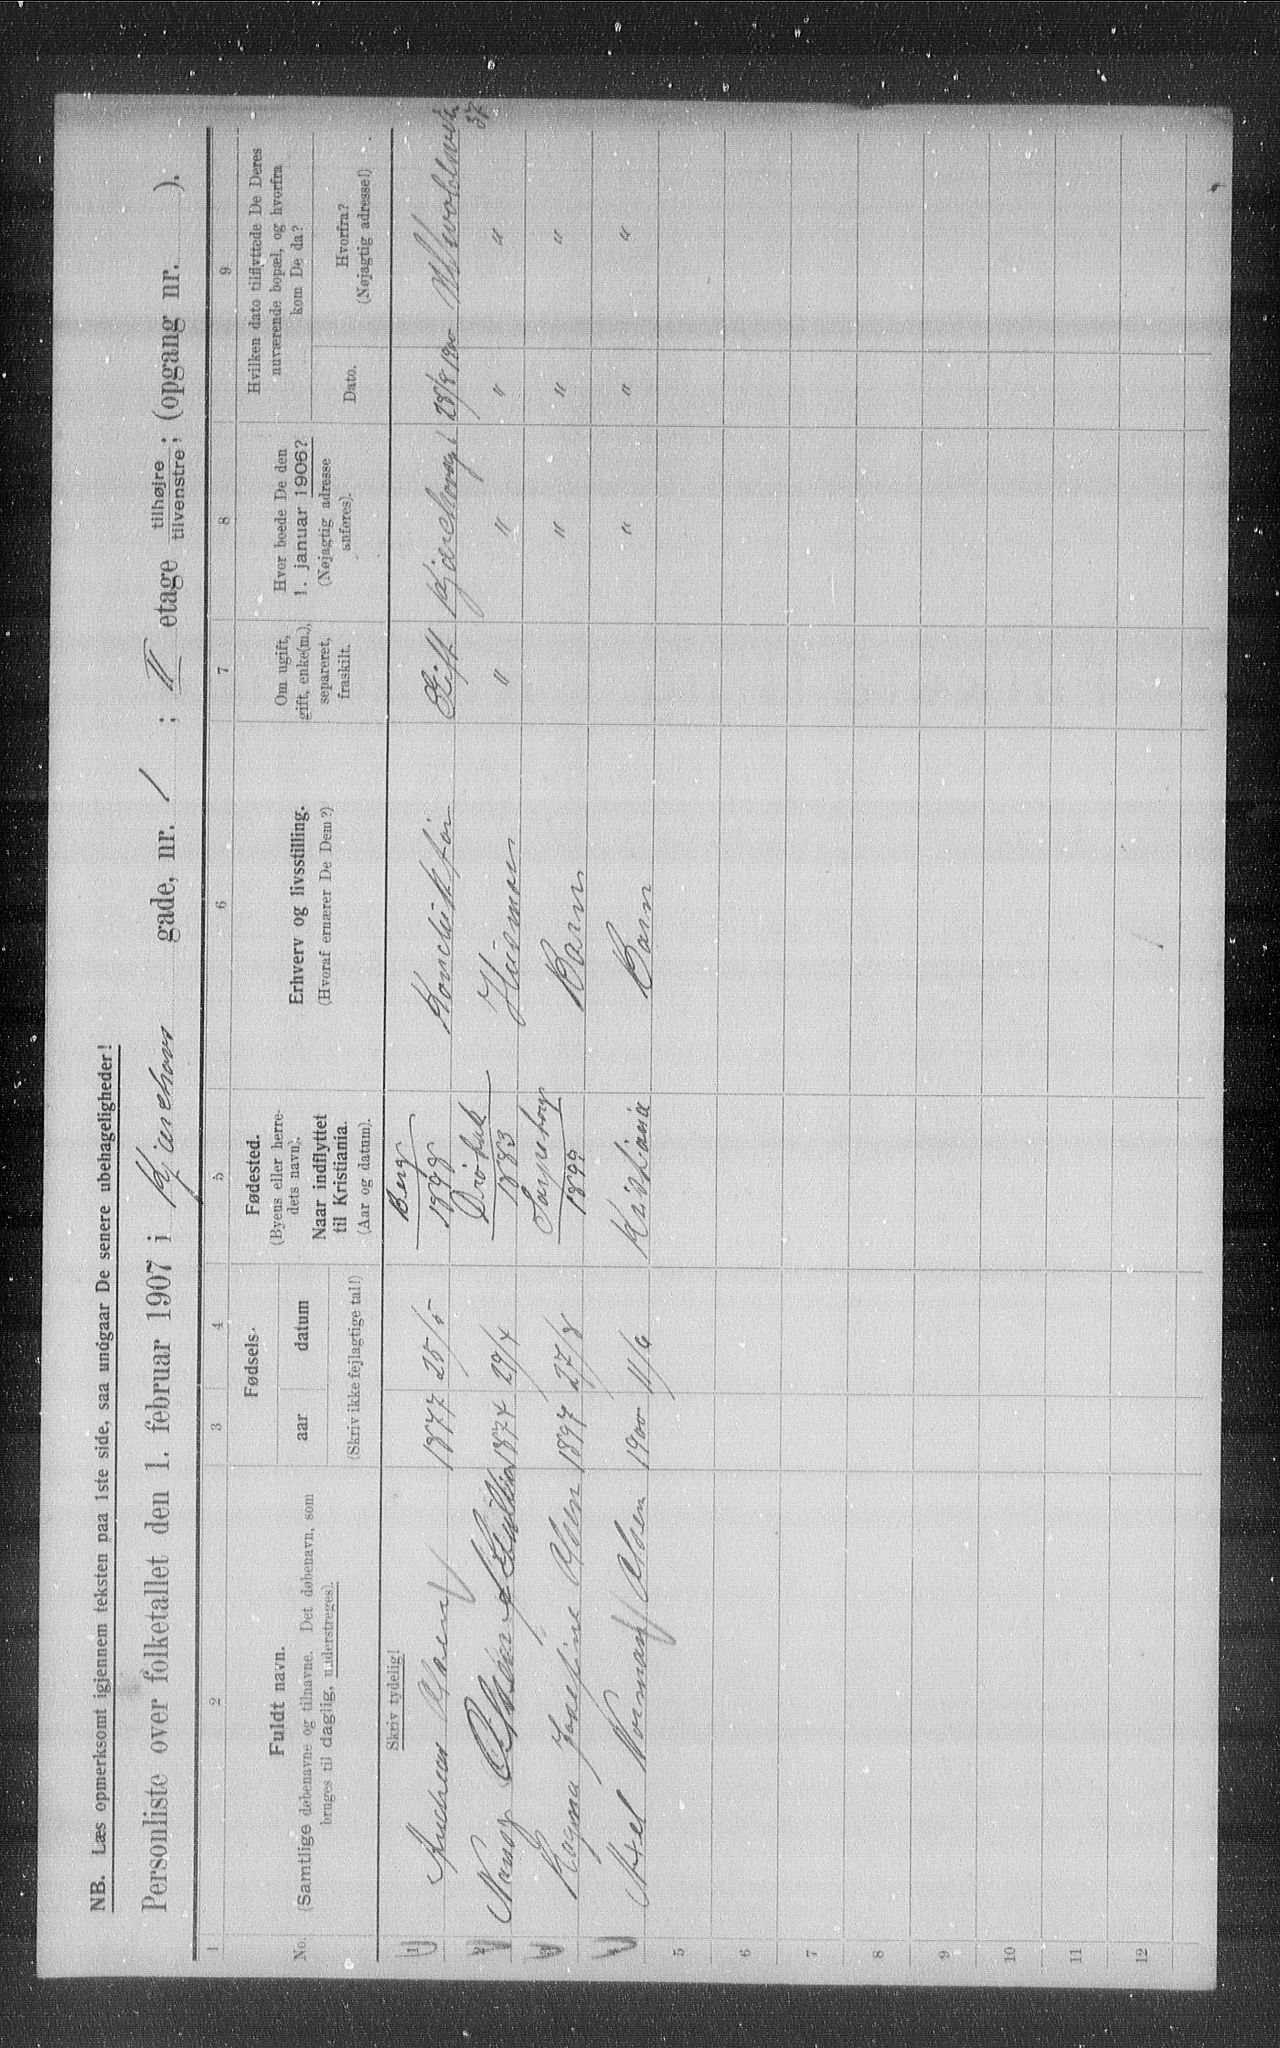 NB. Læs opmerksomt igjennem teksten paa 1ste side, saa undgaar De senere ubehageligheder!
Personliste over folketallet den 1. februar 1907 i Kjærehovs gade, nr. 1 ; II etage tilhøjre tilvenstre ; (opgang nr. ).
1 2 3 4 5 6 7 8 9
No.
Fuldt navn.
(Samtlige døbenavne og tilnavne. Det døbenavn, som
bruges til daglig, understreges).
Fødsels-
aar datum
(Skriv ikke fejlagtige tal!)
Fødested.
(Byens eller herre-
dets navn).
Naar indflyttet
til Kristiania.
(Aar og datum).
Erhverv og livsstilling.
(Hvoraf ernærer De Dem?)
Om ugift,
gift, enke(m.),
separeret,
fraskilt.
Hvor boede De den
1. januar 1906?
(Nøjagtig adresse
anføres).
Hvilken dato tilflyttede De Deres
nuværende bopæl, og hvorfra
kom De da?
Dato.
Hvorfra?
(Nøjagtig adresse!)
Skriv tydelig!
1 Andreas Olsen 1877 25/5 Berg 1898 Konduktør Gift 28/8 1900
37
2 1874 29/4 Drøbak 1883 Husmor " " " "
3 Ragna Josefine Olsen 1897 27/8 Sarpsborg 1899 Barn " " "
4 Axel Norman Olsen 1900 11/6 Kristiania Barn " " "
5
6
7
8
9
10
11
12